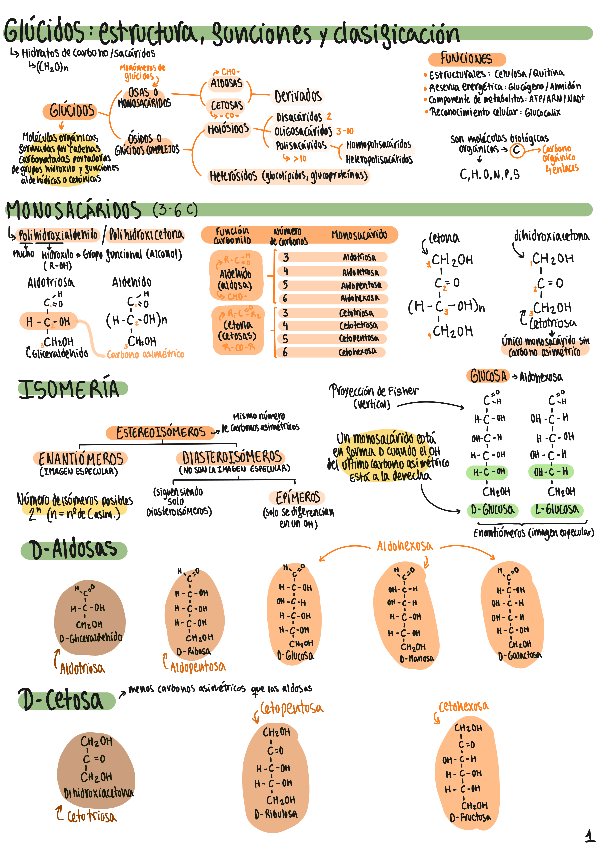 Glúcidos: estructura, funciones y clasificación
↳ Hidratos de carbono/sacáridos
↳ (CH₂O)n
GLÚCIDOS
Moléculas orgánicas
formadas por cadenas
carbonatadas portadoras
de grupos hidroxilo y funciones
aldehídicas o cetónicas
Monómeros de
glúcidos
OSAS O
MONOSACÁRIDOS
-CHO-
ALDOSAS
CETOSAS
-CO-
Derivados
ÓSIDOS O
GLÚCIDOS COMPLEJOS
HOLÓSIDOS
Disacáridos 2
Oligosacáridos 3-10
Polisacáridos
↳ >10
Homopolisacáridos
Heteropolisacáridos
Heterósidos (glucolípidos, glucoproteínas)
FUNCIONES
• Estructurales: Celulosa/Quitina
• Reserva energética: Glucógeno/Almidón
• Componente de metabolitos: ATP/ARN/NAD+
• Reconocimiento celular: Glucocalix
son moléculas biológicas
orgánicas → C → Carbono
orgánico
4 enlaces
C, H, O, N, P, S
MONOSACÁRIDOS (3-6 C)
↳ Polihidroxialdehído / Polihidroxicetona
Mucho Hidroxilo → Grupo funcional (alcohol)
(R-OH)
Aldotriosa
H
C=O
H-C-OH
CH₂OH
Gliceraldehído
Aldehído
H
C=O
(H-C-OH)n
CH₂OH
Carbono asimétrico
Función carbonilo
Número de carbonos
Monosacárido
R-C=O
H
Aldehído
(aldosa)
-CHO-
3 Aldotriosa
4 Aldotetrosa
5 Aldopentosa
6 Aldohexosa
Cetona
(Cetosas)
R-CO-R
3 Cetotriosa
4 Cetotetrosa
5 Cetopentosa
6 Cetohexosa
Cetona
1 CH₂OH
2 C=O
(H-C-OH)n
CH₂OH
dihidroxiacetona
1 CH₂OH
2 C=O
3 CH₂OH
Cetotriosa
Único monosacárido sin
carbono asimétrico
ISOMERÍA
ESTEREOISÓMEROS → Mismo número
de carbonos asimétricos
ENANTIÓMEROS
(IMAGEN ESPECULAR)
DIASTEROISÓMEROS
(NO SON LA IMAGEN ESPECULAR)
Número de isómeros posibles
2ⁿ (n = nº de C asim.)
(siguen siendo
solo
Diasteroisómeros)
EPÍMEROS
(solo se diferencian
en un OH)
Proyección de Fisher
(vertical)
Un monosacárido está
en forma D cuando el OH
del último carbono asimétrico
está a la derecha
GLUCOSA → Aldohexosa
C=O
H
H-C-OH
OH-C-H
H-C-OH
H-C-OH
CH₂OH
D-Glucosa
C=O
H
OH-C-H
H-C-OH
OH-C-H
OH-C-H
CH₂OH
L-Glucosa
Enantiómeros (imagen especular)
D-Aldosas
Aldohexosa
H
C=O
H-C-OH
CH₂OH
D-Gliceraldehído
Aldotriosa
H
C=O
H-C-OH
H-C-OH
H-C-OH
CH₂OH
D-Ribosa
Aldopentosa
H
C=O
H-C-OH
OH-C-H
H-C-OH
H-C-OH
CH₂OH
D-Glucosa
H
C=O
OH-C-H
OH-C-H
H-C-OH
H-C-OH
CH₂OH
D-Manosa
H
C=O
H-C-OH
OH-C-H
OH-C-H
H-C-OH
CH₂OH
D-Galactosa
D-Cetosa
menos carbonos asimétricos que las aldosas
CH₂OH
C=O
CH₂OH
Dihidroxiacetona
Cetotriosa
Cetopentosa
CH₂OH
C=O
H-C-OH
H-C-OH
CH₂OH
D-Ribulosa
Cetohexosa
CH₂OH
C=O
OH-C-H
H-C-OH
H-C-OH
CH₂OH
D-Fructosa
1